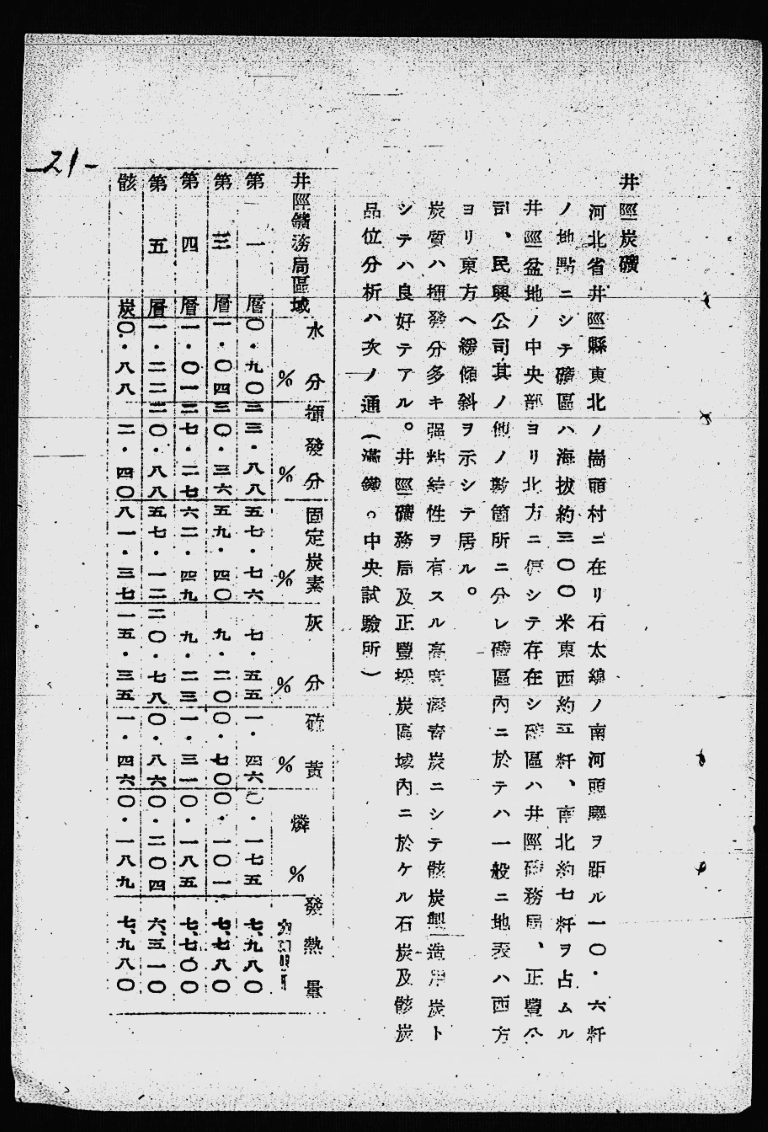 -21-
井陘炭礦
河北省井陘縣東北ノ崗頭村ニ在リ石太線ノ南河頭驛ヲ距ル一〇・六粁
ノ地點ニシテ礦區ハ海拔約三〇〇米東西約五粁、南北約七粁ヲ占ムル
井陘盆地ノ中央部ヨリ北方ニ偏シテ存在シ礦區ハ井陘礦務局、正豐公
司、民興公司其ノ他ノ數箇所ニ分レ礦區內ニ於テハ一般ニ地表ハ西方
ヨリ東方ヘ緩傾斜ヲ示シテ居ル。
炭質ハ揮發分多キ强粘結性ヲ有スル高度瀝靑炭ニシテ骸炭製造用炭ト
シテハ良好テアル。井陘礦務局及正豐採炭區域內ニ於ケル石炭及骸炭
品位分析ハ次ノ通(滿鐵。中央試驗所)
井陘鑛務局區域 水分% 揮發分% 固定炭素% 灰分% 硫黃% 燐% 發熱量
第一層 〇・九〇 三三・八八 五七・七六 七・五五 一・四六 〇・一七五 七、九八〇
第三層 一・〇四 三〇・三六 五九・四〇 九・二〇 〇・七〇 〇・一〇一 七、七八〇
第四層 一・〇一 二七・二七 六二・四九 九・二三 一・三一 〇・一八五 七、七〇〇
第五層 一・二二 二〇・八八 五七・一二 二〇・七八 〇・八六 〇・二〇四 六、三一〇
骸炭 〇・八八 二・四〇 八一・三七 一五・三五 一・四六 〇・一八九 七、九八〇